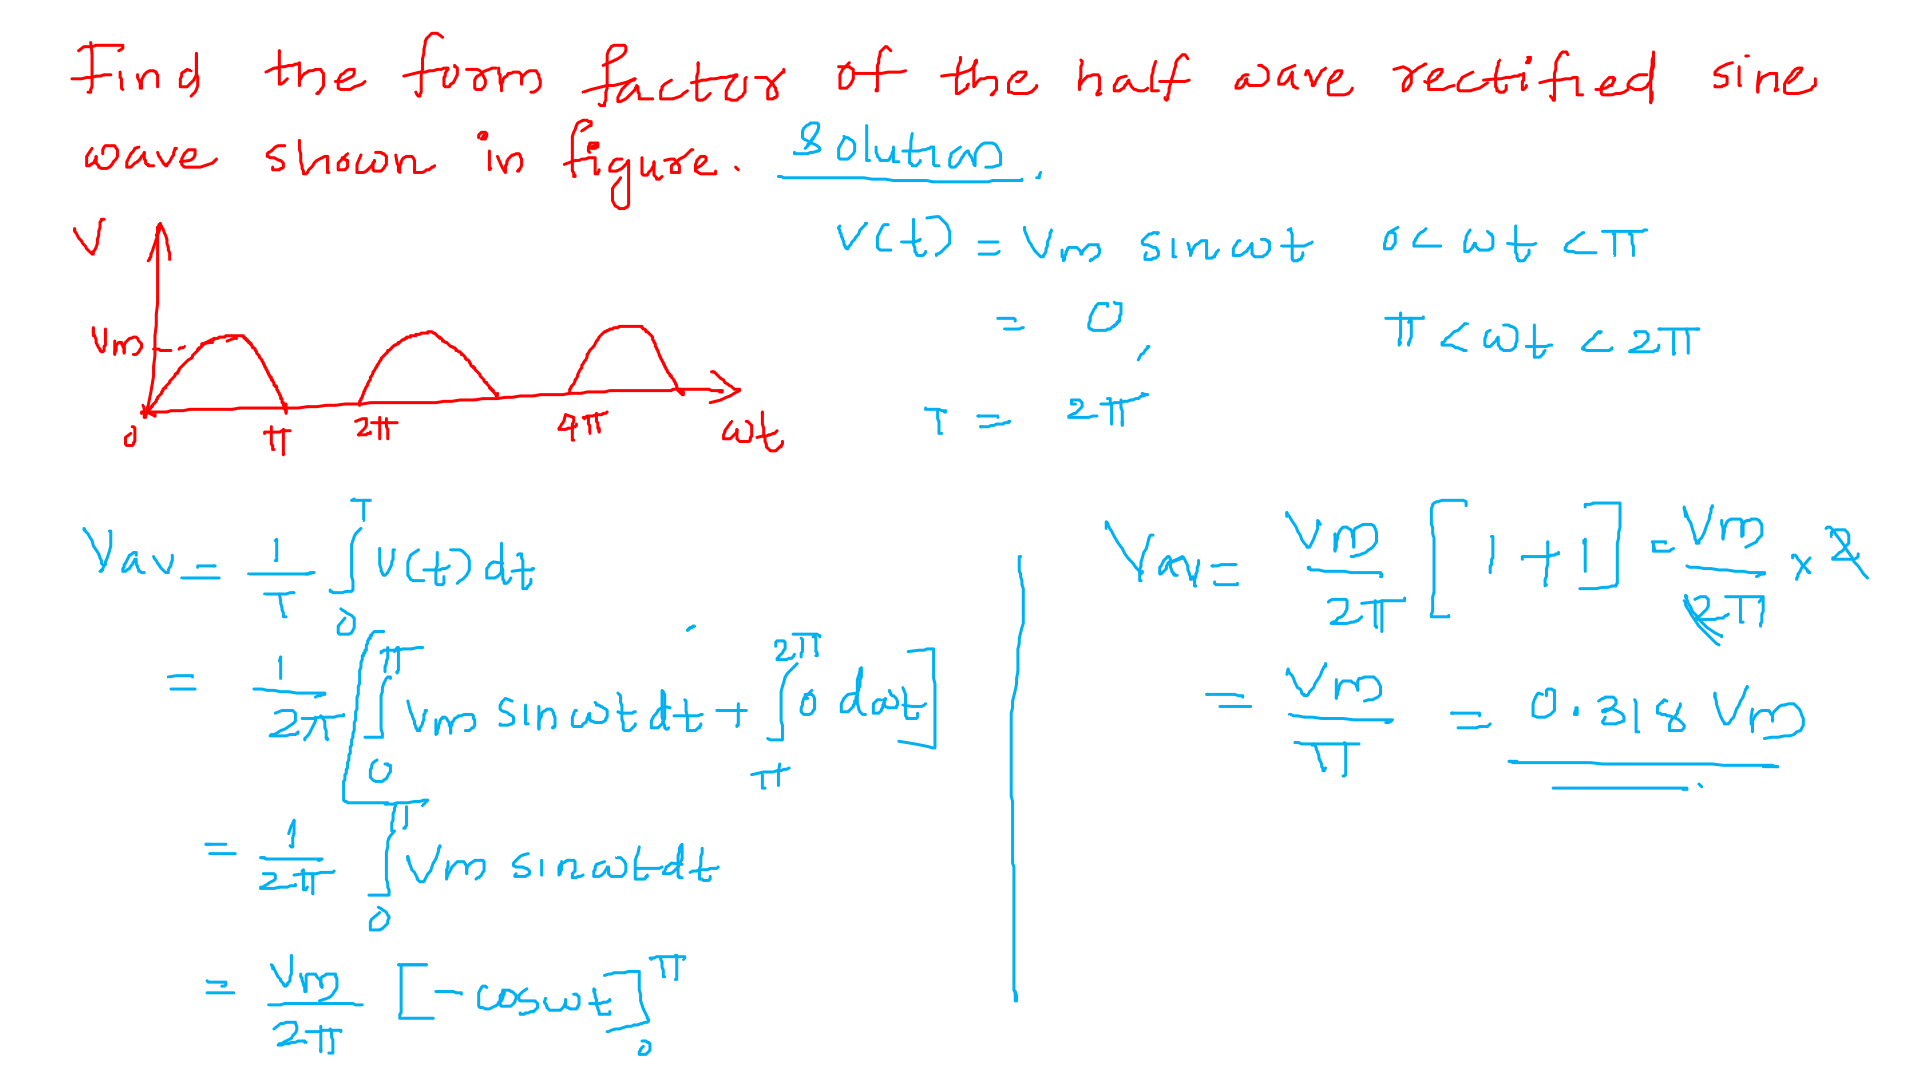 Find the form factor of the half wave rectified sine
wave shown in figure. Solution.
V
Vm
0 π 2π 4π ωt
V(t) = Vm sinωt 0 < ωt < π
= 0, π < ωt < 2π
T = 2π
Vav = 1/T ∫₀ᵀ V(t) dt
= 1/2π [∫₀^π Vm sinωt dt + ∫_π^2π 0 dωt]
= 1/2π ∫₀^π Vm sinωt dt
= Vm/2π [-cosωt]₀^π
Vav = Vm/2π [1+1] = Vm/2π × 2
= Vm/π = 0.318 Vm